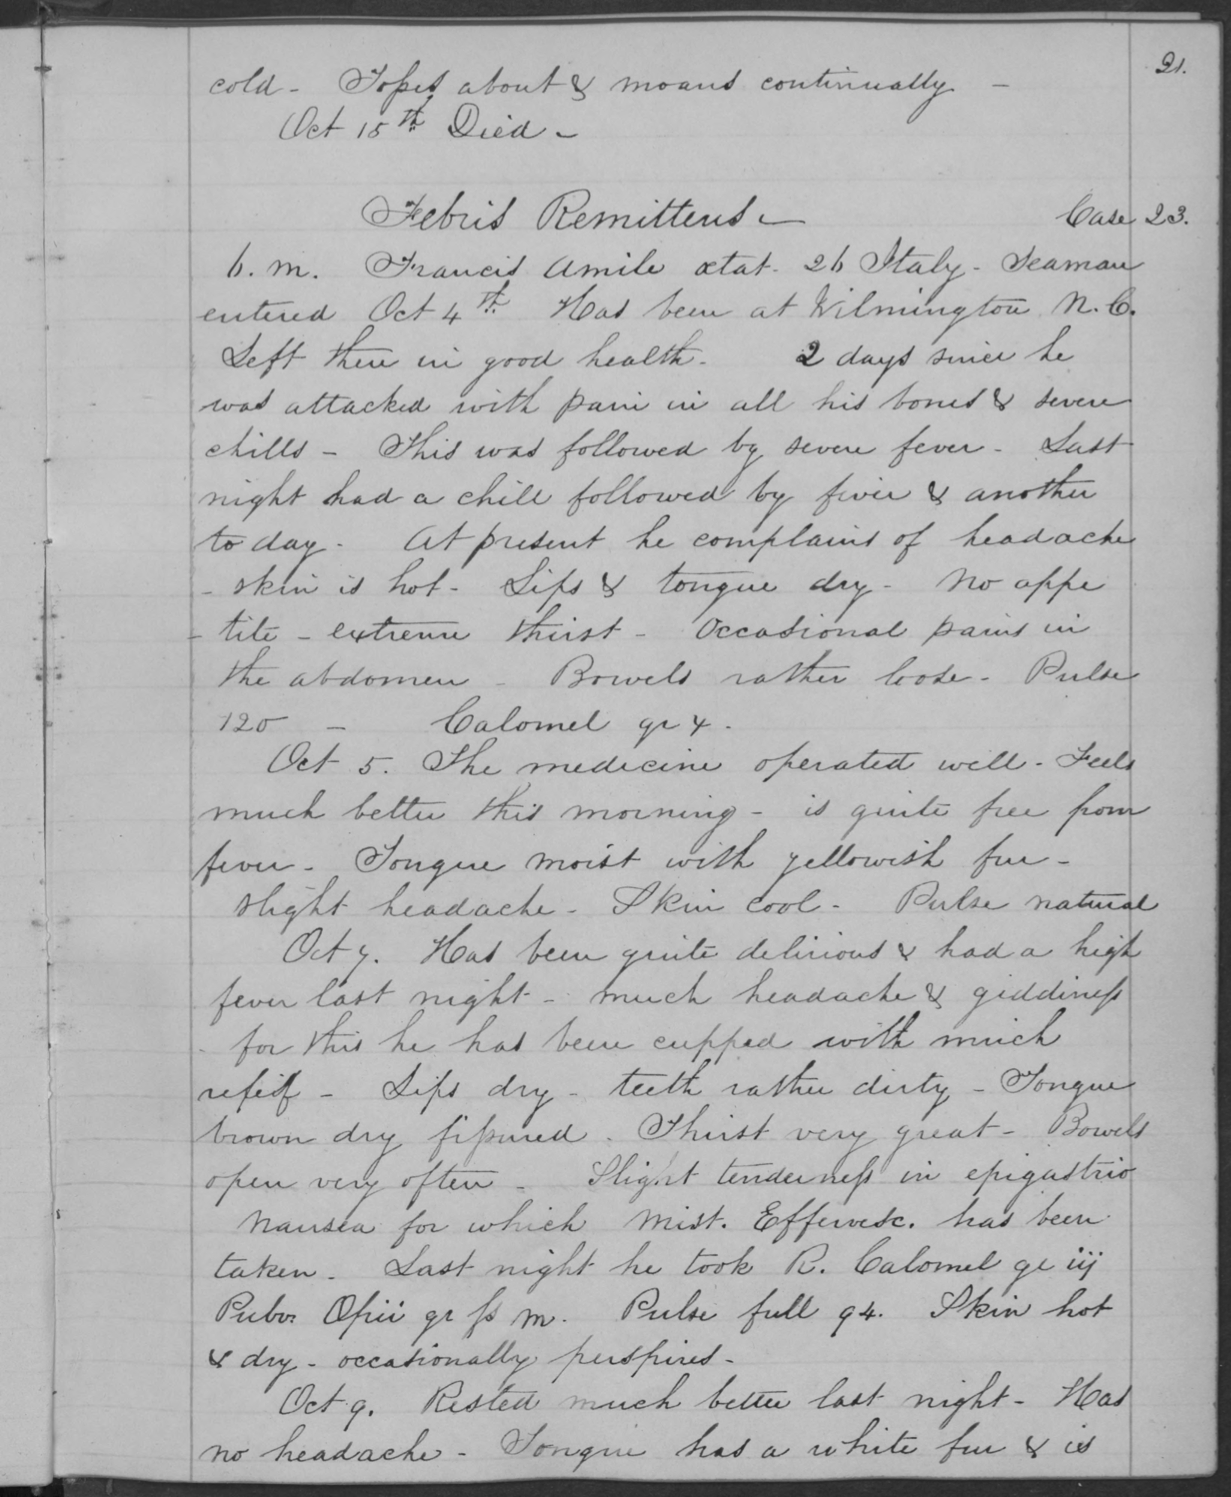 21.
cold - Tosses about & moans continually -
Oct 15th Died -
Febris Remittens - Case 23.
6. m. Francis Amile ætat. 26 Italy - Seaman
entered Oct 4th. Has been at Wilmington N.C.
Left there in good health - 2 days since he
was attacked with pain in all his bones & severe
chills - This was followed by severe fever - Last
night had a chill followed by fever & another
to day - At present he complains of headache
- skin is hot - Lips & tongue dry - No appe
- tite - extreme thirst - Occasional pains in
the abdomen - Bowels rather loose - Pulse
120 - Calomel gr X.
Oct 5. The medicine operated well - Feels
much better this morning - is quite free from
fever - Tongue moist with yellowish fur -
slight headache - Skin cool - Pulse natural
Oct 7. Has been quite delirious & had a high
fever last night - much headache & giddiness
for this he has been cupped with much
relief - Lips dry - teeth rather dirty - Tongue
brown dry fissured. Thirst very great - Bowels
open very often - Slight tenderness in epigastrio
Nausea for which Mist. Effervesc. has been
taken - Last night he took R. Calomel gr iij
Pulv. Opii gr ss m. Pulse full 94. Skin hot
& dry - occasionally perspires -
Oct 9. Rested much better last night - Has
no headache - Tongue has a white fur & is